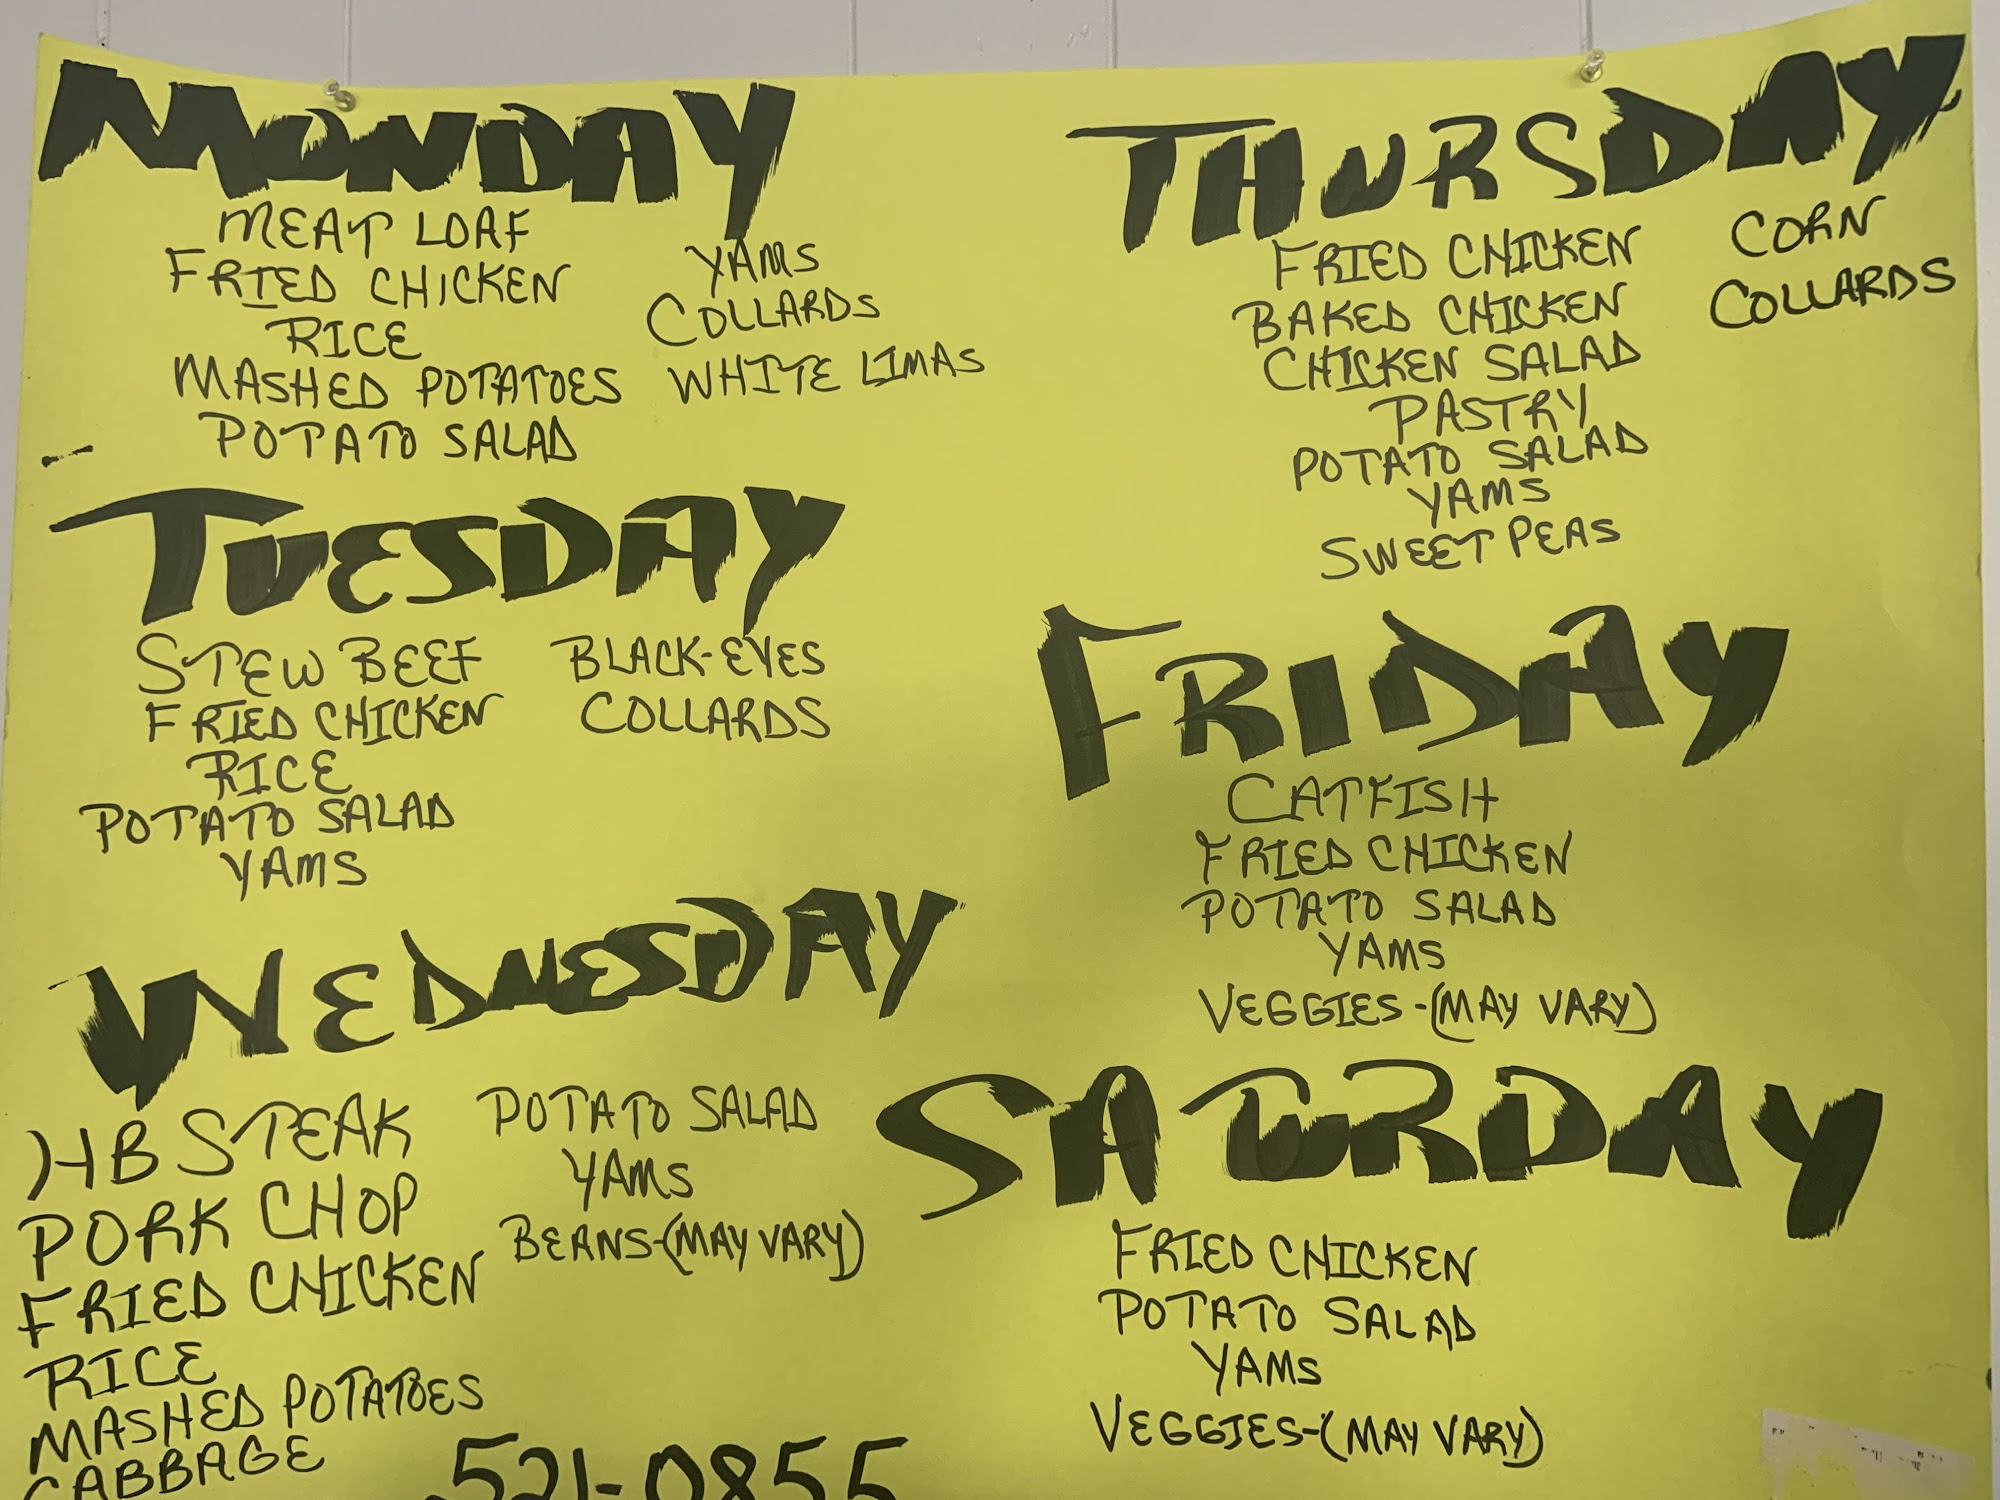 MONDAY
MEAT LOAF
FRIED CHICKEN
RICE
MASHED POTATOES
POTATO SALAD
YAMS
COLLARDS
WHITE LIMAS
TUESDAY
STEW BEEF
FRIED CHICKEN
RICE
POTATO SALAD
YAMS
BLACK-EYES
COLLARDS
WEDNESDAY
HB STEAK
PORK CHOP
FRIED CHICKEN
RICE
MASHED POTATOES
CABBAGE
POTATO SALAD
YAMS
BEANS-(MAY VARY)
521-0855
THURSDAY
FRIED CHICKEN
BAKED CHICKEN
CHICKEN SALAD
PASTRY
POTATO SALAD
YAMS
SWEET PEAS
CORN
COLLARDS
FRIDAY
CATFISH
FRIED CHICKEN
POTATO SALAD
YAMS
VEGGIES-(MAY VARY)
SATURDAY
FRIED CHICKEN
POTATO SALAD
YAMS
VEGGIES-(MAY VARY)